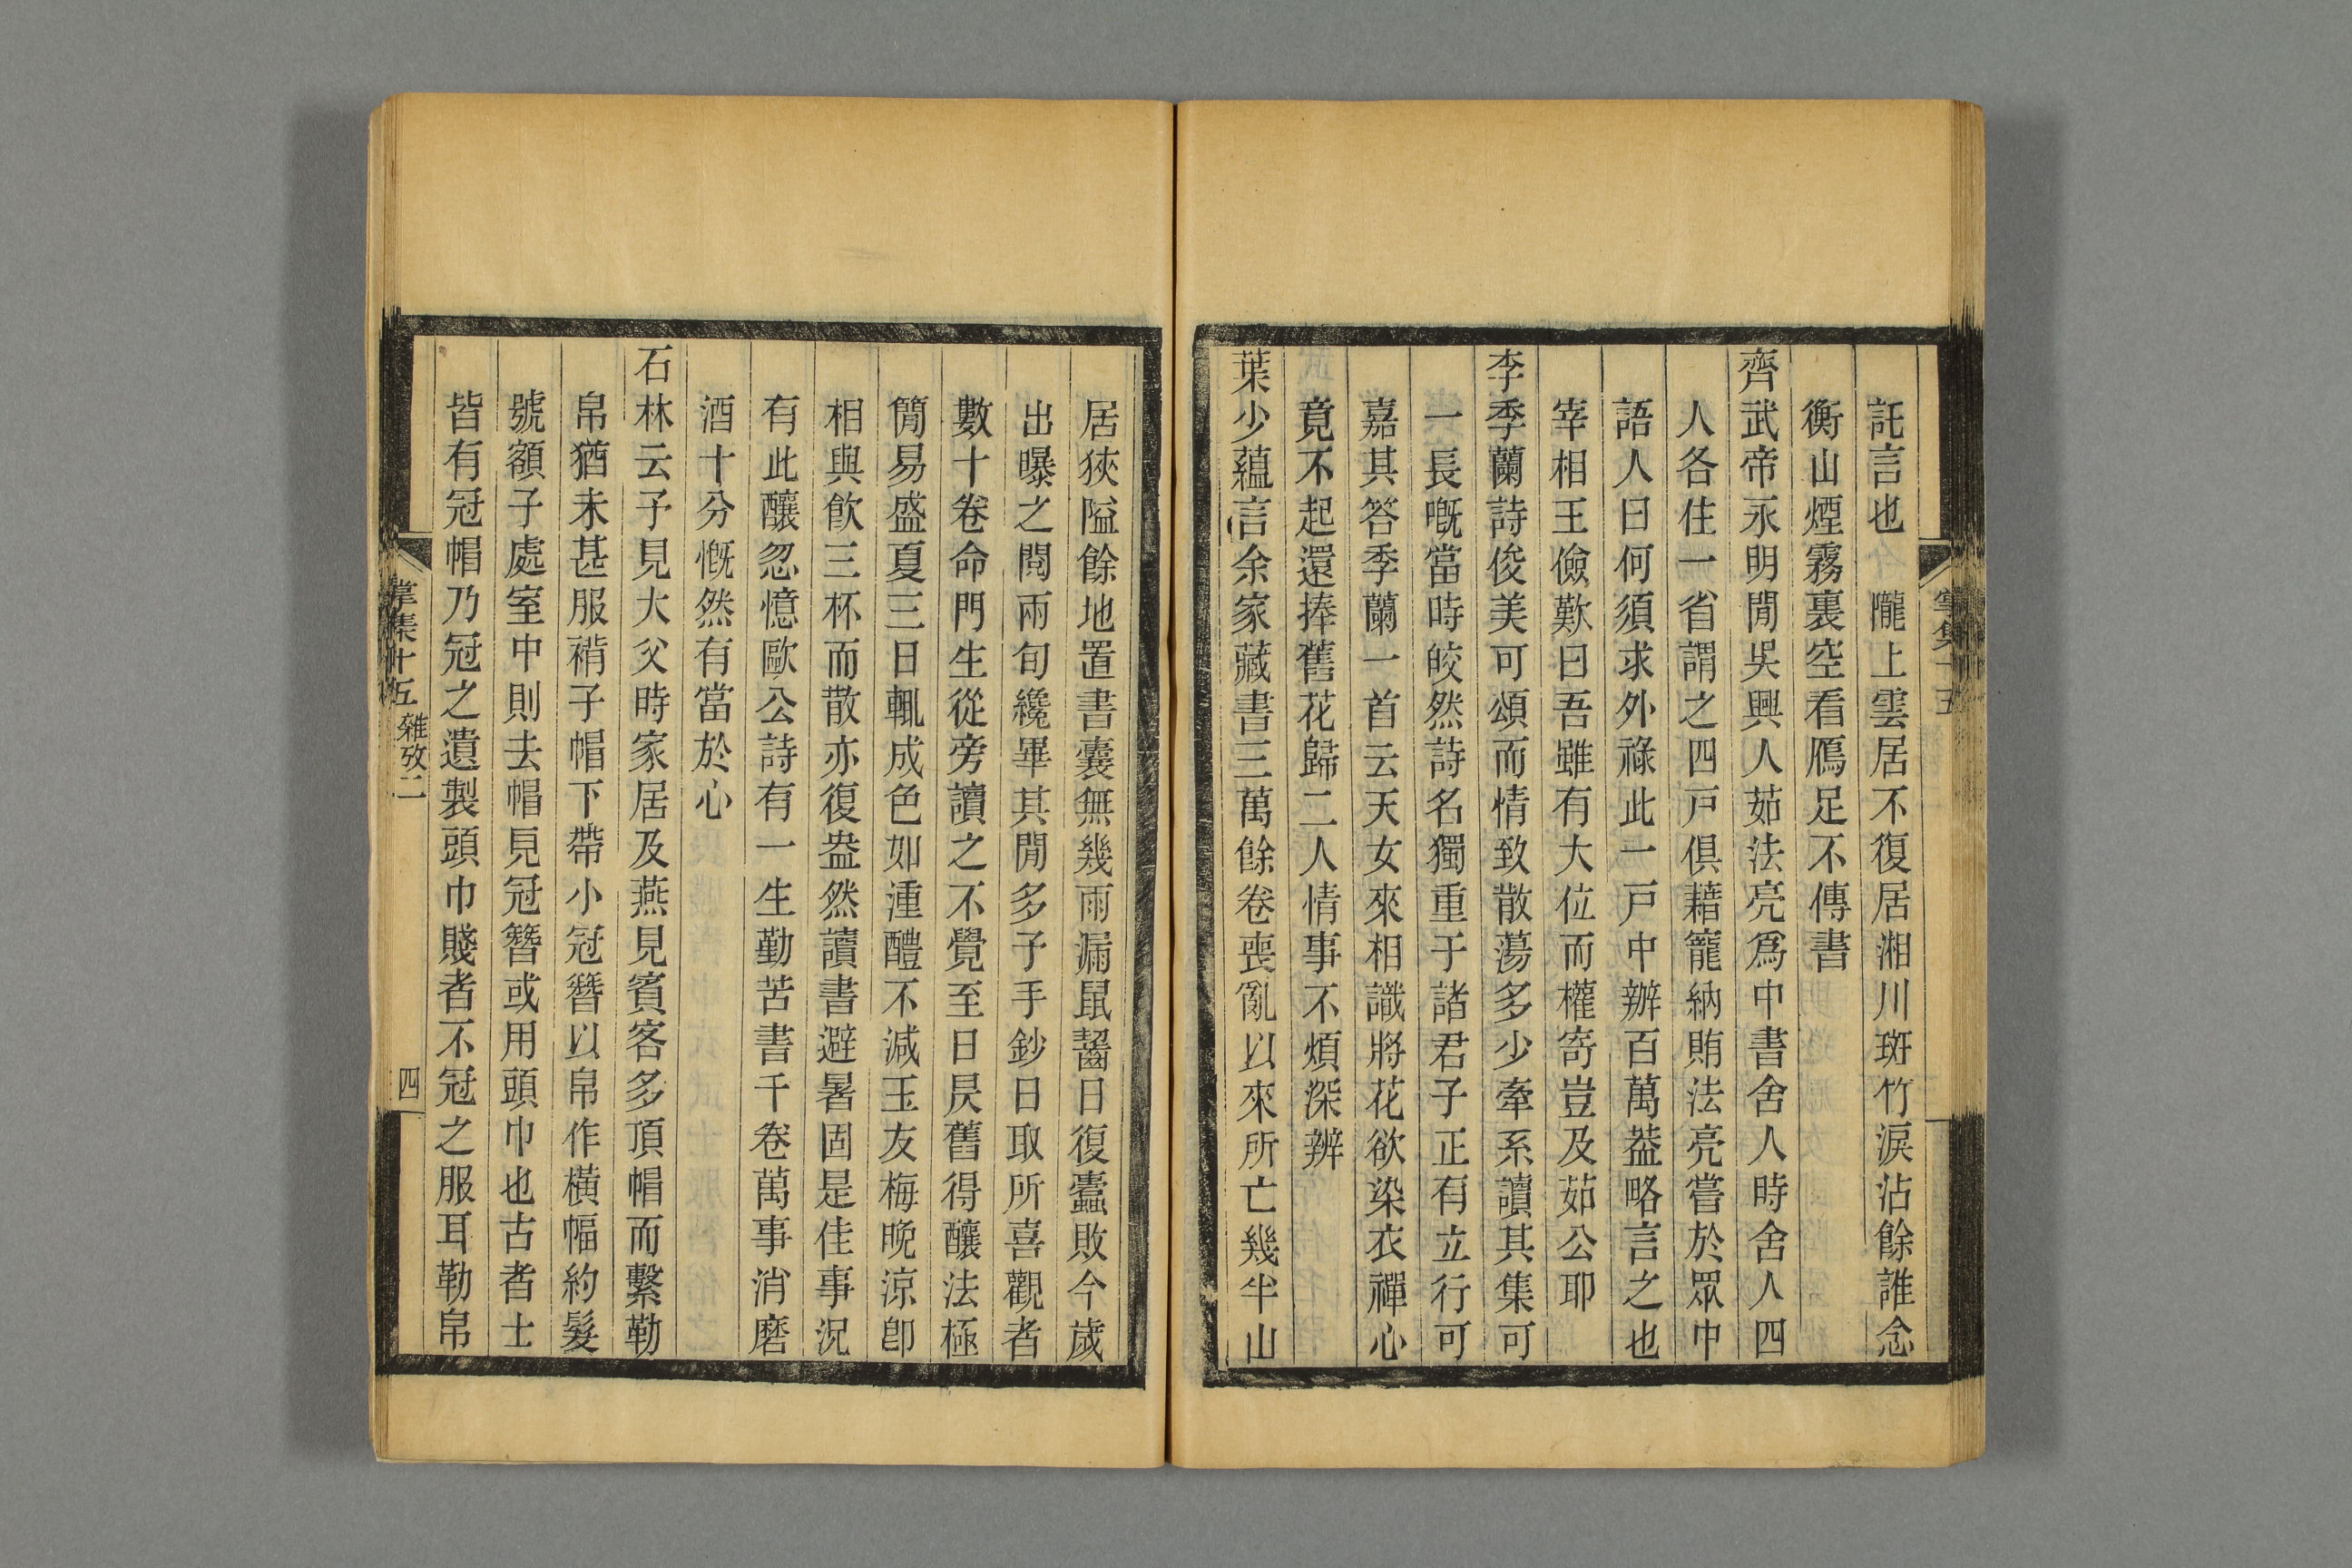 託言也　隴上雲居不復居湘川斑竹淚沾餘誰念
衡山煙霧裏空看鴈足不傳書
齊武帝永明閒吳興人茹法亮爲中書舍人時舍人四
人各住一省謂之四戸俱藉寵納賄法亮嘗於眾中
語人曰何須求外祿此一戸中辦百萬葢略言之也
宰相王儉歎曰吾雖有大位而權寄豈及茹公耶
李季蘭詩俊美可頌而情致散蕩多少牽系讀其集可
一長嘅當時皎然詩名獨重于諸君子正有立行可
嘉其答季蘭一首云天女來相識將花欲染衣禪心
竟不起還捧舊花歸二人情事不煩深辨
葉少蘊言余家藏書三萬餘卷喪亂以來所亡幾半山
居狹隘餘地置書囊無幾雨漏鼠齧日復蠹敗今歲
出曝之閱兩旬纔畢其閒多予手鈔日取所喜觀者
數十卷命門生從旁讀之不覺至日昃舊得釀法極
簡易盛夏三日輒成色如湩醴不減玉友梅晚涼卽
相與飲三杯而散亦復盎然讀書避暑固是佳事況
有此釀忽憶歐公詩有一生勤苦書千卷萬事消磨
酒十分慨然有當於心
石林云予見大父時家居及燕見賓客多頂帽而繫勒
帛猶未甚服褙子帽下帶小冠簪以帛作橫幅約髮
號額子處室中則去帽見冠簪或用頭巾也古者士
皆有冠帽乃冠之遺製頭巾賤者不冠之服耳勒帛
集十五 雜攷二
四